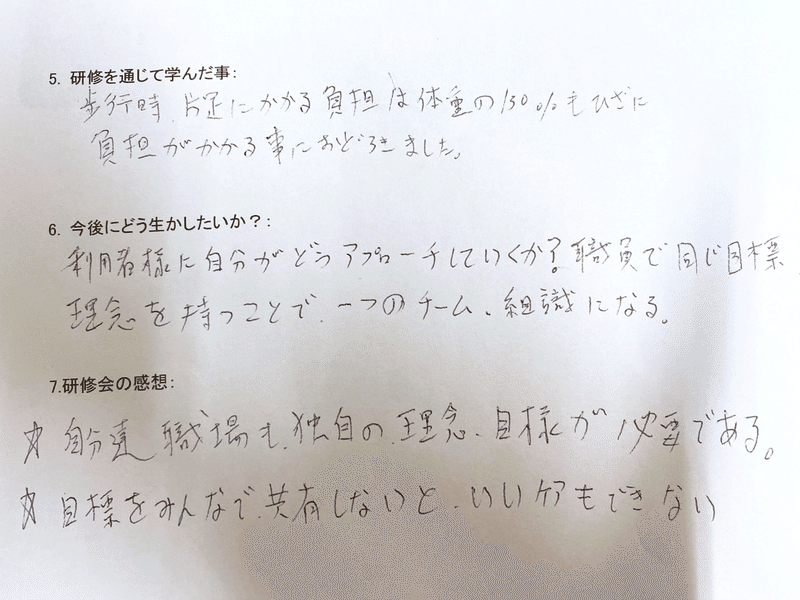 5. 研修を通じて学んだ事:
歩行時、片足にかかる負担は体重の130%もひざに
負担がかかる事におどろきました。
6. 今後にどう生かしたいか？:
利用者様に自分がどうアプローチしていくか？職員で同じ目標
理念を持つことで、一つのチーム、組織になる。
7.研修会の感想:
☆ 自分達職場も、独自の理念、目様が必要である。
☆ 目標をみんなで、共有しないと、いいケアもできない